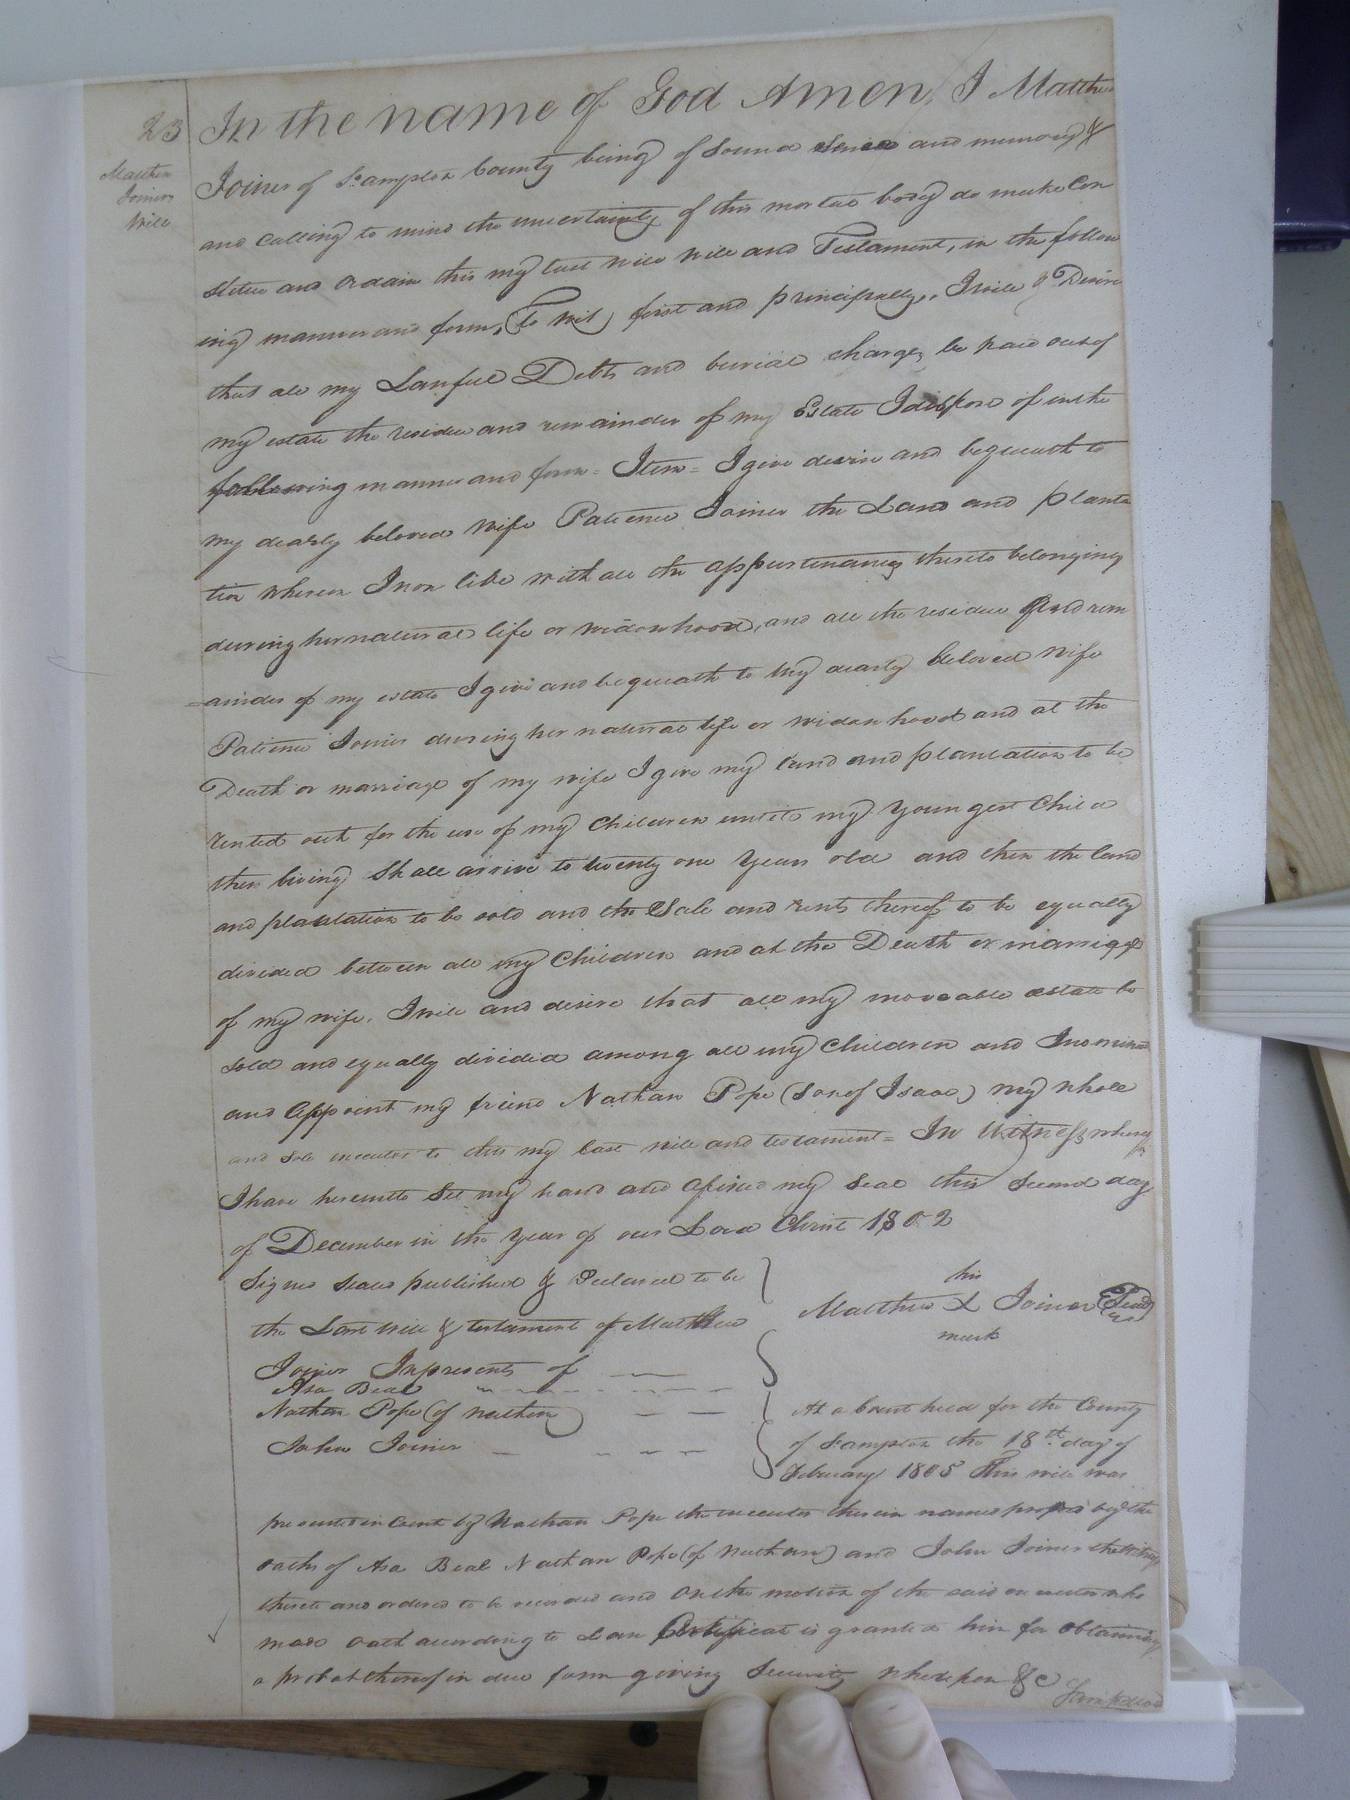 23
Matthew
Joiners
Will
In the name of God Amen, I Matthew
Joiner of S:ampton County being of Sound Sence and memory &
and calling to mind the uncertainty of this mortal body do make Con
stitue and ordain this my last will will and Testament, in the follow
ing manner and form, (To Wit) first and principally, I will & Desire
that all my Lawfull Debts and burial charges be paid out of
my estate the residue and remainder of my Estate I dispose of in the
following manner and form = Item = I give desire and bequeath to
my dearly beloved wife Patience Joiner the Land and planta
tion whereon I now live with all the appurtenances thereto belonging
during her natural life or widowhood, and all the residue and rem
=ainder of my estate I give and bequeath to my dearly beloved wife
Patience Joiner during her natural life or widowhood and at the
Death or marriage of my wife I give my land and plantation to be
rented out for the use of my Children until my youngest Child
then living Shall arrive to twenty one Years old and then the land
and plantation to be sold and the Sale and rents thereof to be equally
divided between all my Children and at the Death or marriage
of my wife. I will and desire that all my moveable estate be
sold and equally divided among all my Children and I nominate
and Appoint my friend Nathan Pope (Son of Isaac) my whole
and sole executor to this my last will and testament = In Witness whereof
I have hereunto Set my hand and afixed my Seal this Second day
of December in the Year of our Lord Christ 1802
Signed Sealed published & Declared to be
the Last Will & testament of Matthew
Joiner In presents of
Asa Beal
Nathan Pope (of Nathan)
John Joiner
his
Matthew X Joiner Seal
mark
At a Court held for the County
of S:ampton the 18th day of
February 1805 This will was
presented in Court by Nathan Pope the executor therein named proved by the
oaths of Asa Beal Nathan Pope (of Nathan) and John Joiner the
thereto and ordered to be recorded and on the motion of the said executor who
made oath according to Law Certificat is granted him for obtaining
a probat thereof in due form giving Security whereupon &C